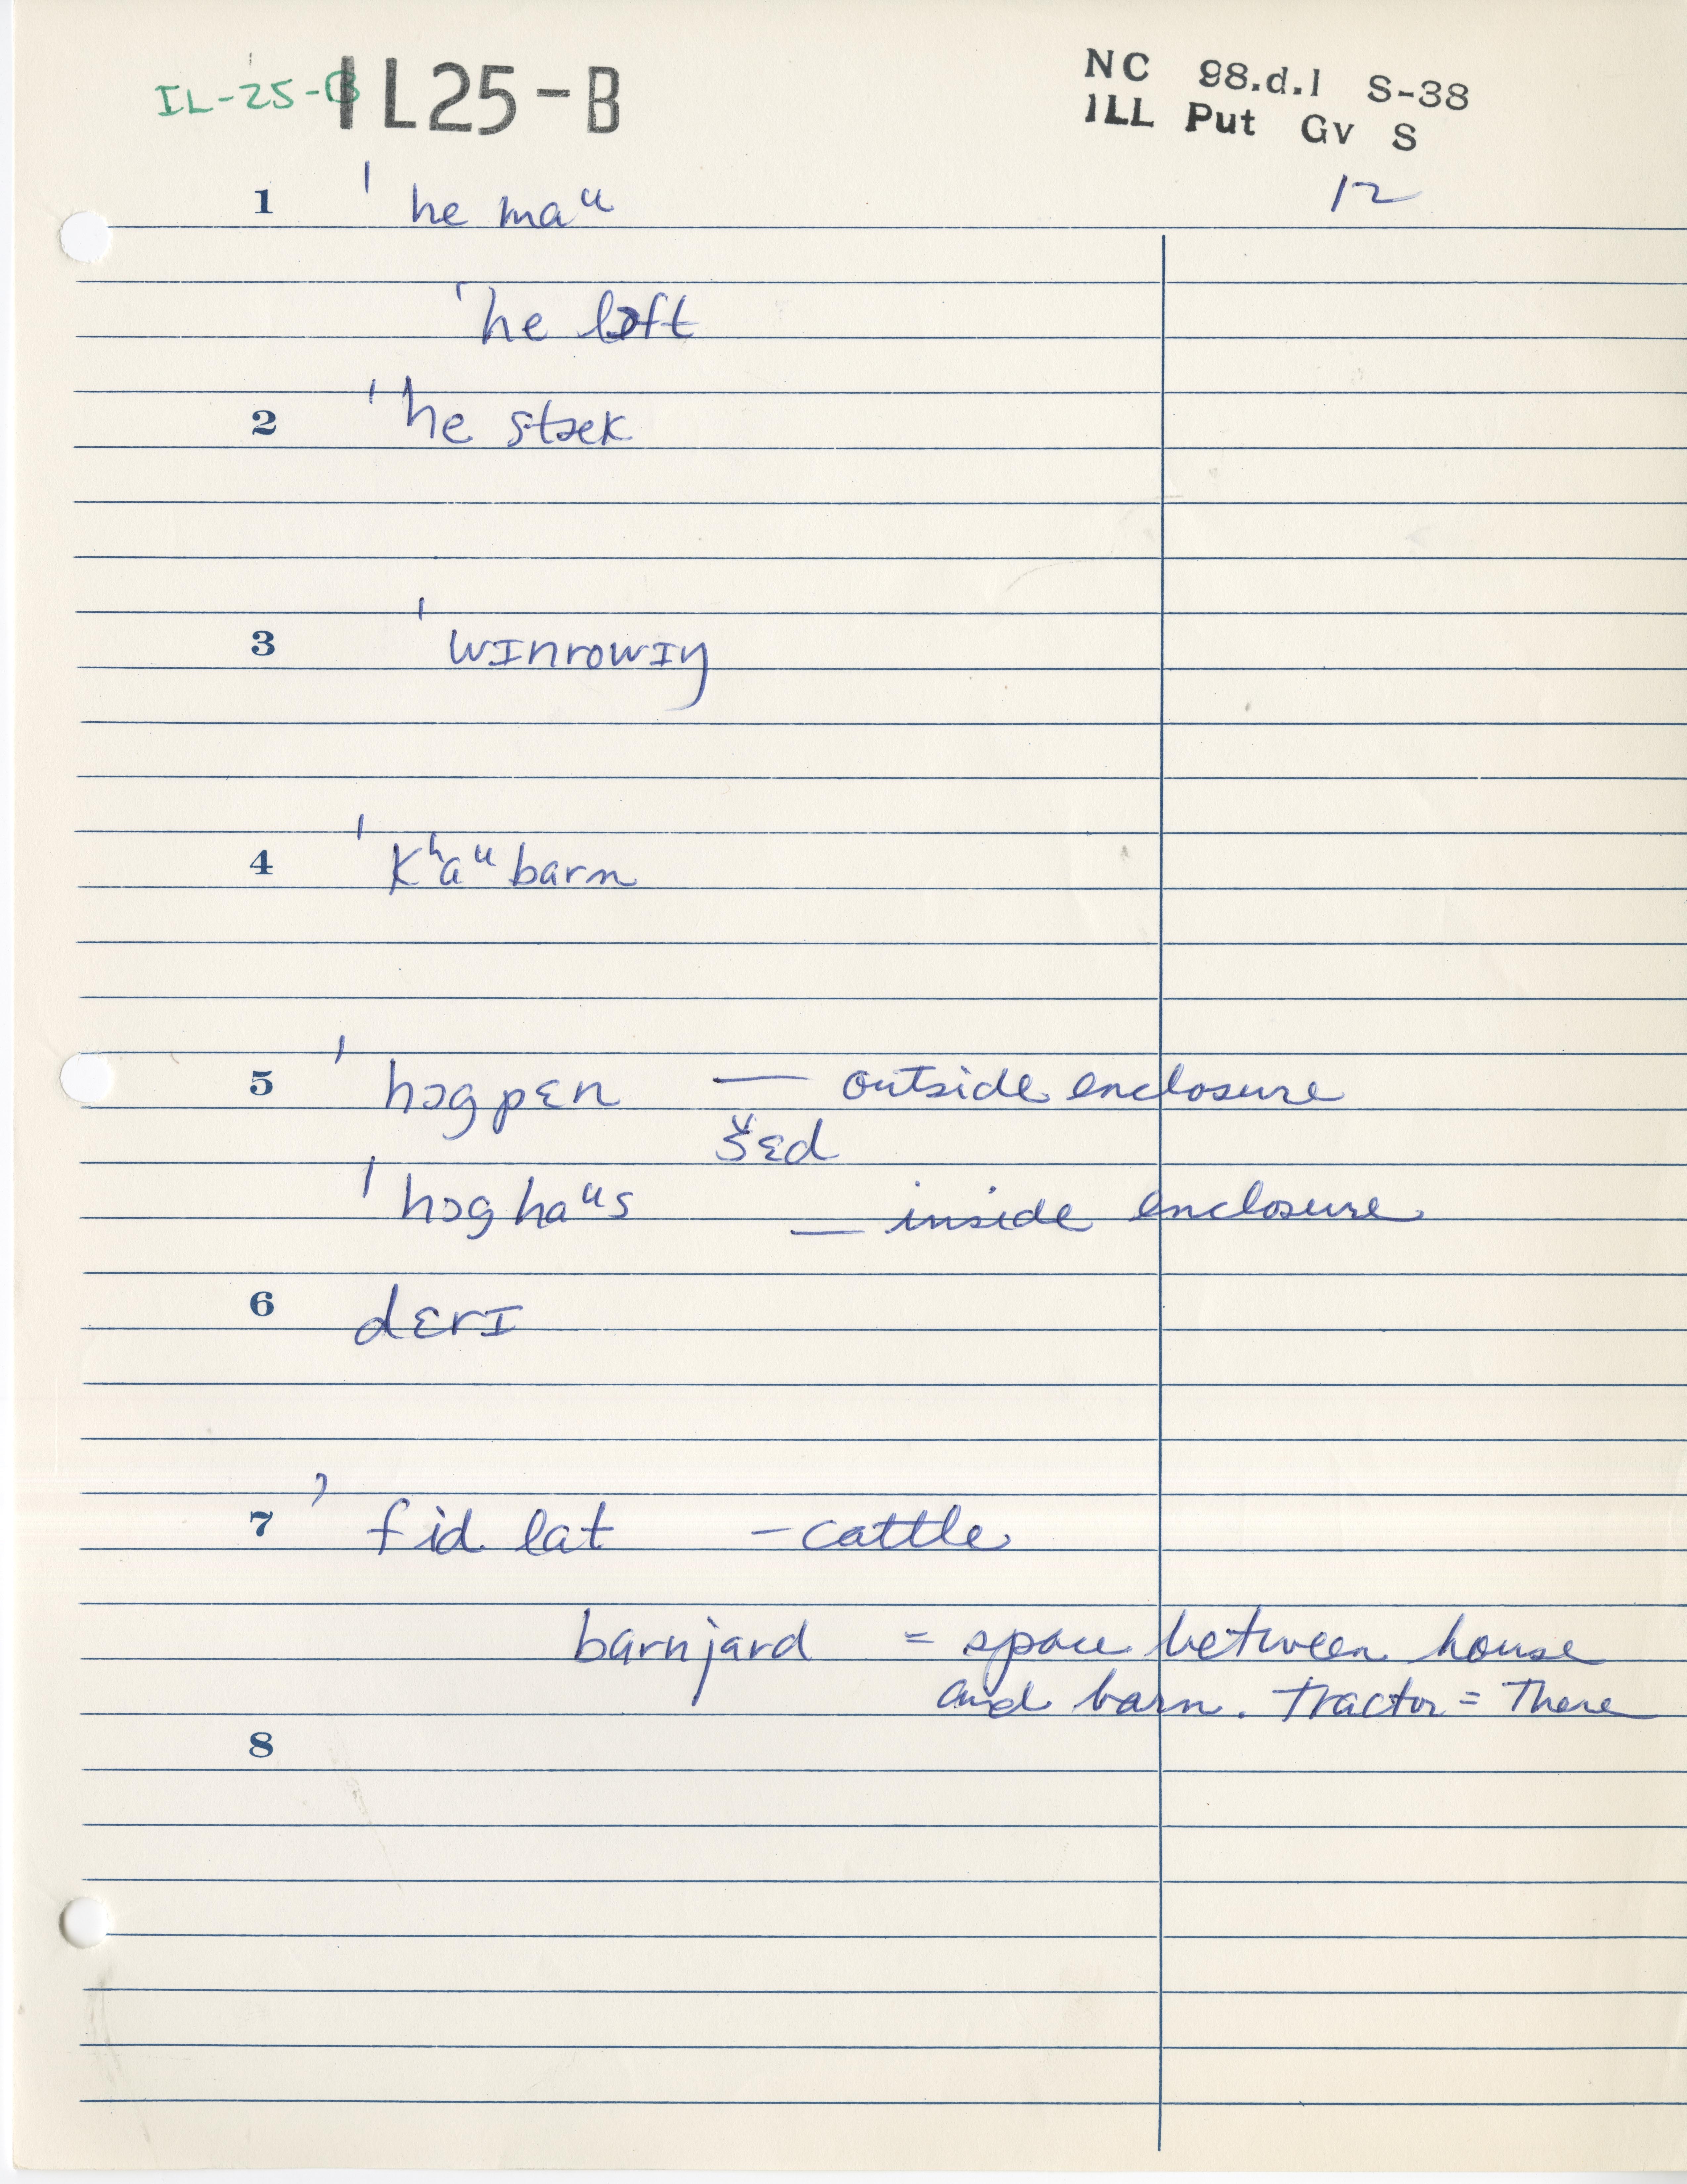 IL-25-B IL25-B
NC 98.d.1 S-38
ILL Put Gv S
12
1 ˈhe maᵘ
ˈhe lɔft
2 ˈhe stæk
3 ˈwɪnrowɪŋ
4 ˈKʰaᵘ barn
5 ˈhɔg pɛn — outside enclosure
šɛd
ˈhɔg haᵘs — inside enclosure
6 dɛrɪ
7 ˈfid lat – cattle
barnjard = space between house
and barn. Tractor = There
8